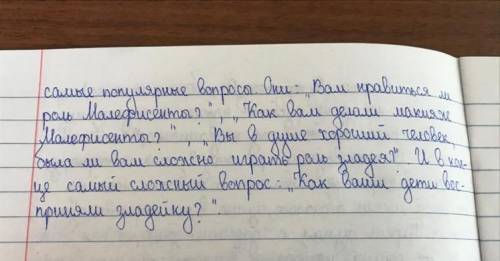 самые популярные вопросы. Они: „Вам нравиться ли
роль Малефисенты?", „Как вам делали макияж
Малефисенты?", „Вы в душе хороший человек,
была ли вам сложно играть роль злодея?" И в кон-
це самый сложный вопрос: „Как ваши дети вос-
приняли злодейку?".